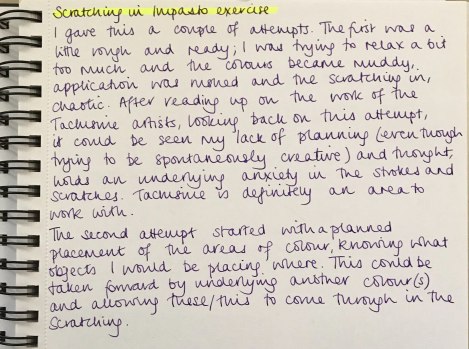 Scratching in Impasto exercise
I gave this a couple of attempts. The first was a
little rough and ready; I was trying to relax a bit
too much and the colours became muddy,
application was and the scratching in,
chaotic. After reading up on the work of the
Tachisme artists, looking back on this attempt,
it could be seen my lack of planning (even though
trying to be spontaneously creative) and thought,
holds an underlying anxiety in the strokes and
scratches. Tachisme is definitely an area to
work with.
The second attempt started with a planned
placement of the areas of colour, knowing what
objects I would be placing where. This could be
taken forward by underlying another colour(s)
and allowing these/this to come through in the
scratching.